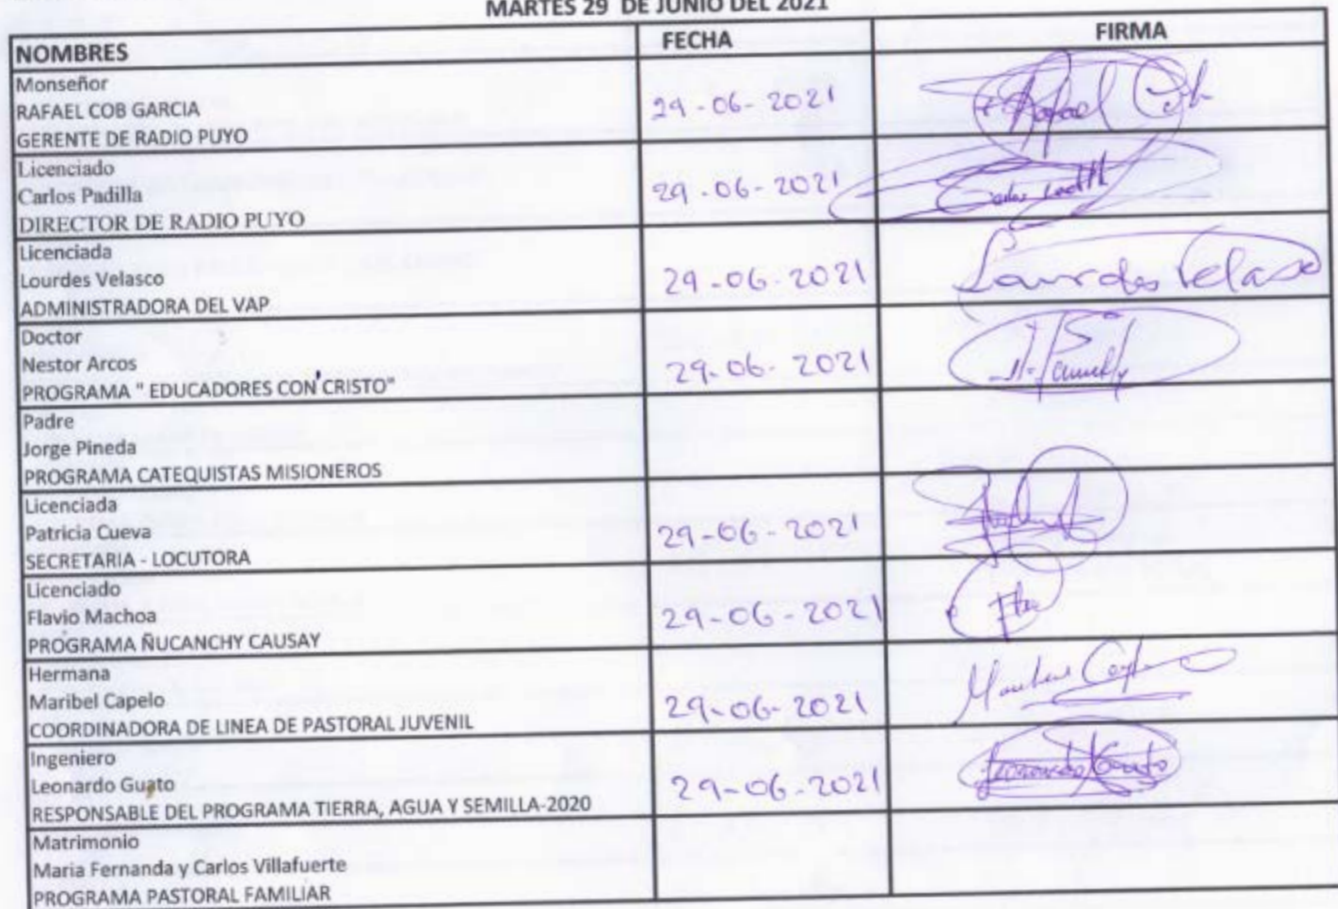 MARTES 29 DE JUNIO DEL 2021
NOMBRES FECHA FIRMA
Monseñor
RAFAEL COB GARCIA
GERENTE DE RADIO PUYO
29-06-2021 Rafael Cob
Licenciado
Carlos Padilla
DIRECTOR DE RADIO PUYO
29-06-2021
Licenciada
Lourdes Velasco
ADMINISTRADORA DEL VAP
29-06-2021 Lourdes Velasco
Doctor
Nestor Arcos
PROGRAMA " EDUCADORES CON CRISTO"
29-06-2021
Padre
Jorge Pineda
PROGRAMA CATEQUISTAS MISIONEROS
Licenciada
Patricia Cueva
SECRETARIA - LOCUTORA
29-06-2021
Licenciado
Flavio Machoa
PROGRAMA ÑUCANCHY CAUSAY
29-06-2021
Hermana
Maribel Capelo
COORDINADORA DE LINEA DE PASTORAL JUVENIL
29-06-2021
Ingeniero
Leonardo Guato
RESPONSABLE DEL PROGRAMA TIERRA, AGUA Y SEMILLA-2020
29-06-2021 Leonardo Guato
Matrimonio
Maria Fernanda y Carlos Villafuerte
PROGRAMA PASTORAL FAMILIAR